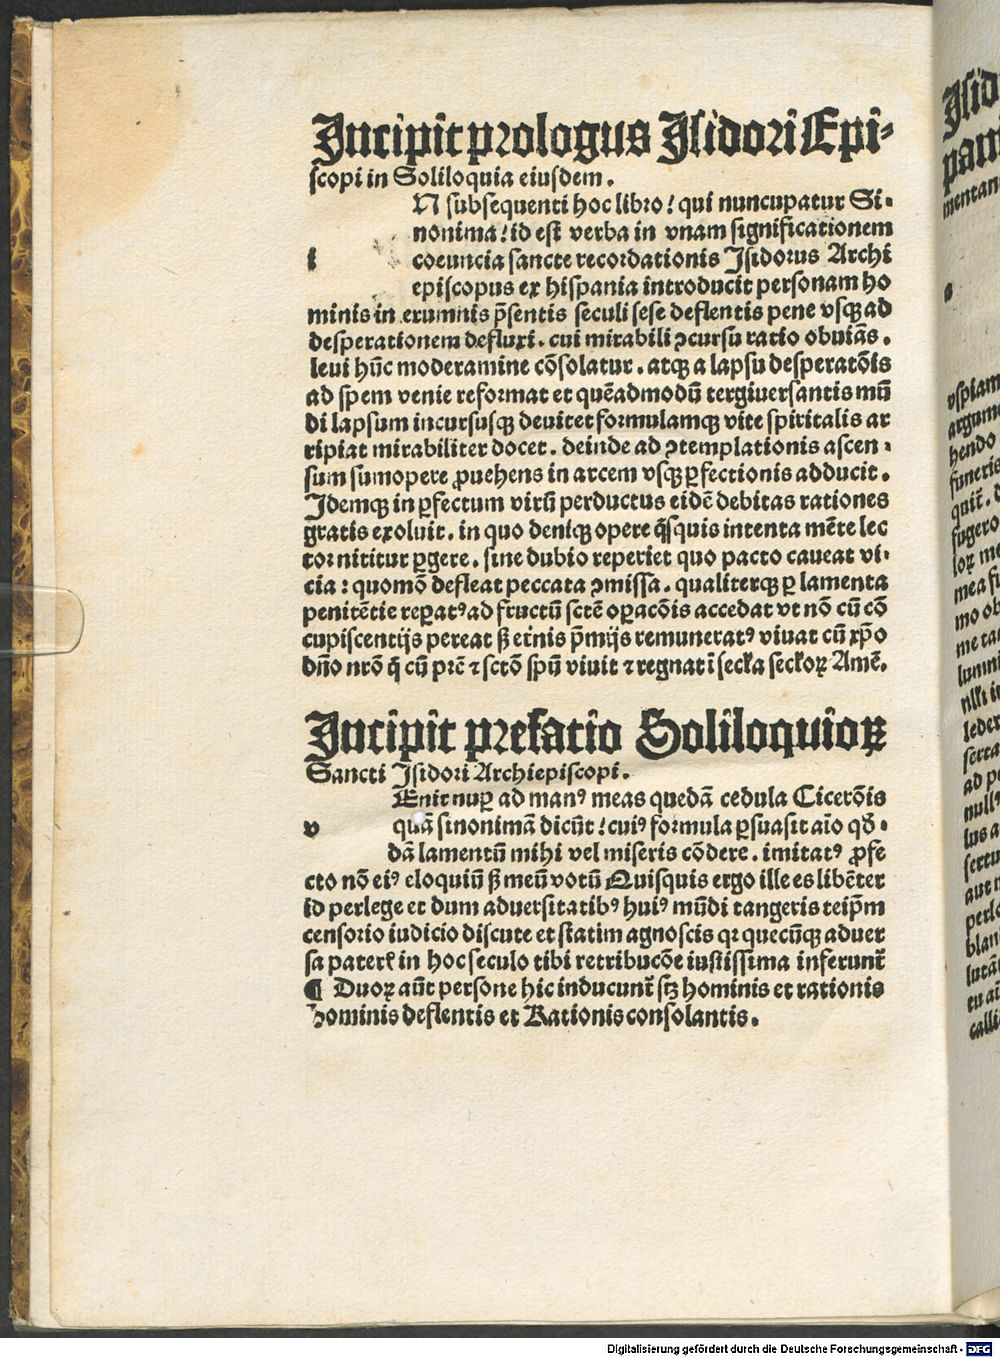 Incipit prologus Isidori Epi-
scopi in Soliloquia eiusdem.
N subsequenti hoc libro! qui nuncupatur Si-
nonima! id est verba in vnam significationem
i coeuncia sancte recordationis Isidorus Archi
episcopus ex hispania introducit personam ho
minis in erumnis p̄sentis seculi sese deflentis pene vsqꝫ ad
desperationem defluxi. cui mirabili ↄcursu ratio obuiās.
leui hūc moderamine cōsolatur. atqꝫ a lapsu desperatōis
ad spem venie reformat et quēadmodū tergiuersantis mū
di lapsum incursusqꝫ deuitet formulamqꝫ vite spiritalis ar
ripiat mirabiliter docet. deinde ad ↄtemplationis ascen-
sum sumopere ꝓuehens in arcem vsqꝫ ꝑfectionis adducit.
Idemqꝫ in ꝑfectum virū perductus eidē debitas rationes
gratis exoluit. in quo deniqꝫ opere q̄squis intenta mēte lec
tor nititur ꝑgere. sine dubio reperiet quo pacto caueat vi-
cia: quomō defleat peccata ↄmissa. qualiterqꝫ ꝑ lamenta
penitētie reꝑatꝰ ad fructū sctē oꝑacōis accedat vt nō cū cō
cupiscentijs pereat sꝫ et̄nis p̄mijs remuneratꝰ viuat cū xp̄o
dn̄o nrō q̄ cū prē ⁊ sctō sp̄u viuit ⁊ regnat ī seck̄a seck̄oꝝ Amē.
Incipit prefatio Soliloquioꝝ
Sancti Isidori Archiepiscopi.
Enit nuꝑ ad manꝰ meas quedā cedula Cicerōis
v quā sinonimā dicūt! cuiꝰ formula ꝑsuasit aīo qd̄-
dā lamentū mihi vel miseris cōdere. imitatꝰ ꝓfe
cto nō eiꝰ eloquiū sꝫ meū votū Quisquis ergo ille es libēter
id perlege et dum aduersitatibꝰ huiꝰ mūdi tangeris teip̄m
censorio iudicio discute et statim agnoscis qꝛ quecūqꝫ aduer
sa pater̄ in hoc seculo tibi retribucōe iustissima inferunt̄
¶ Duoꝝ aūt persone hic inducunt̄ sꝫ hominis et rationis
hominis deflentis et Rationis consolantis.
Isid
pani
mentan
a
vspiam
argume
hendo
funeris
quit̄. d
fugero
loꝝ me
mea fi
mo ob
me tan
lumni
leder
serta
ad pe
nullꝰ
lus a
sertu
aut n
perlo
blan
lutā
tu aū
calli
Digitalisierung gefördert durch die Deutsche Forschungsgemeinschaft - DFG